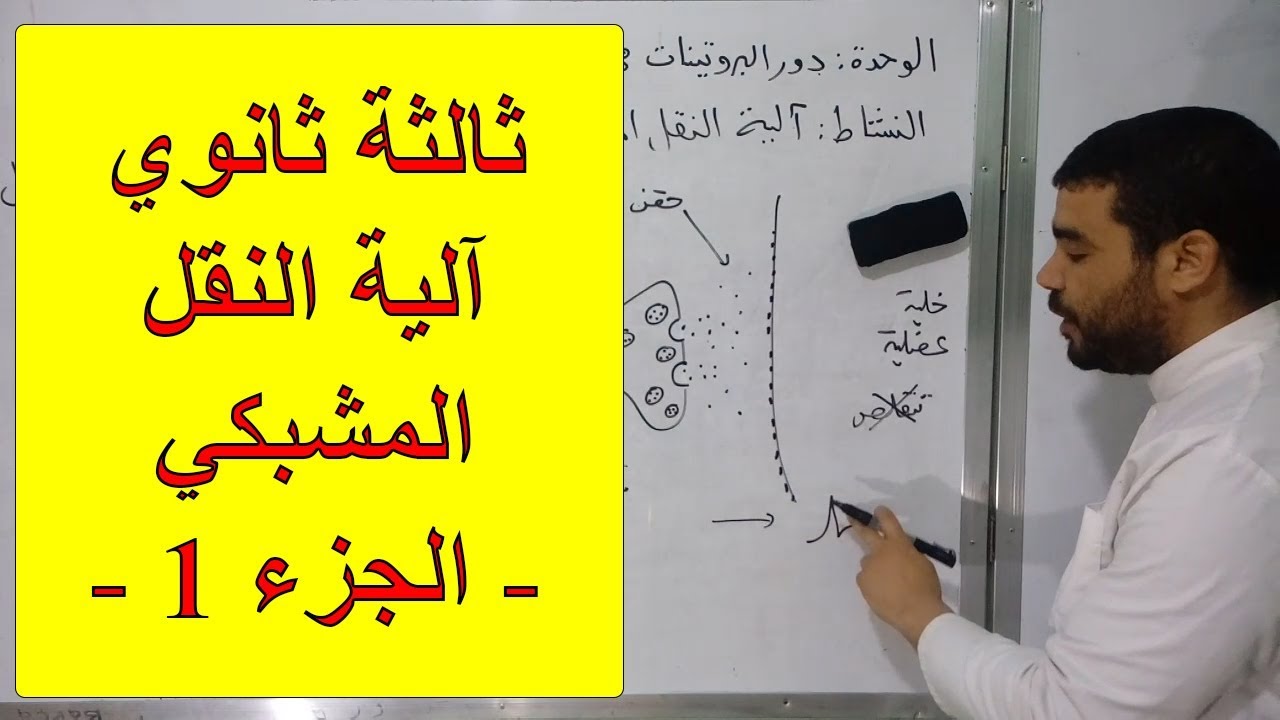 ثالثة ثانوي
آلية النقل
المشبكي
- الجزء 1 -
الوحدة: دور البروتينات
النشاط: آلية النقل
حقن
خلية
عضلية
تتقلص